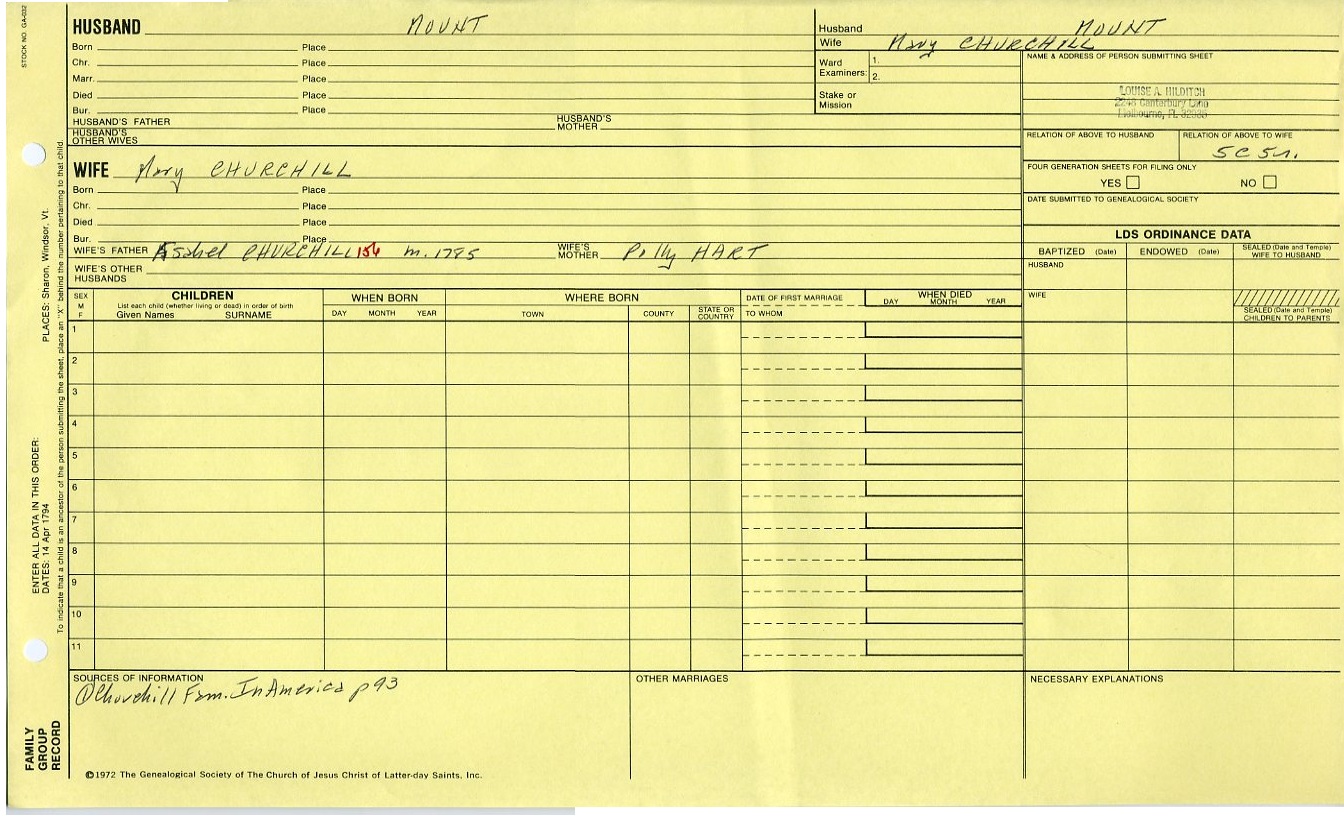 STOCK NO. GA-032
HUSBAND MOUNT
Born Place
Chr. Place
Marr. Place
Died Place
Bur. Place
HUSBAND'S FATHER HUSBAND'S MOTHER
HUSBAND'S OTHER WIVES
Husband MOUNT
Wife Mary CHURCHILL
Ward Examiners: 1.
2.
Stake or Mission
NAME & ADDRESS OF PERSON SUBMITTING SHEET
LOUISE A. HILDITCH
2246 Canterbury Lane
Melbourne, FL 32935
RELATION OF ABOVE TO HUSBAND RELATION OF ABOVE TO WIFE
5C5n.
FOUR GENERATION SHEETS FOR FILING ONLY
YES NO
DATE SUBMITTED TO GENEALOGICAL SOCIETY
WIFE Mary CHURCHILL
Born Place
Chr. Place
Died Place
Bur. Place
WIFE'S FATHER CHURCHILL 156 m. 1785 WIFE'S MOTHER Polly HART
WIFE'S OTHER HUSBANDS
LDS ORDINANCE DATA
BAPTIZED (Date) ENDOWED (Date) SEALED (Date and Temple) WIFE TO HUSBAND
HUSBAND
WIFE
SEALED (Date and Temple) CHILDREN TO PARENTS
SEX M F
CHILDREN
List each child (whether living or dead) in order of birth
Given Names SURNAME
WHEN BORN
DAY MONTH YEAR
WHERE BORN
TOWN COUNTY STATE OR COUNTRY
DATE OF FIRST MARRIAGE
TO WHOM
WHEN DIED
DAY MONTH YEAR
1
2
3
4
5
6
7
8
9
10
11
SOURCES OF INFORMATION
① Churchill Fam. In America p 93
OTHER MARRIAGES
NECESSARY EXPLANATIONS
©1972 The Genealogical Society of The Church of Jesus Christ of Latter-day Saints, Inc.
FAMILY GROUP RECORD
ENTER ALL DATA IN THIS ORDER:
DATES: 14 Apr 1794
PLACES: Sharon, Windsor, Vt.
To indicate that a child is an ancestor of the person submitting the sheet, place an "X" behind the number pertaining to that child.